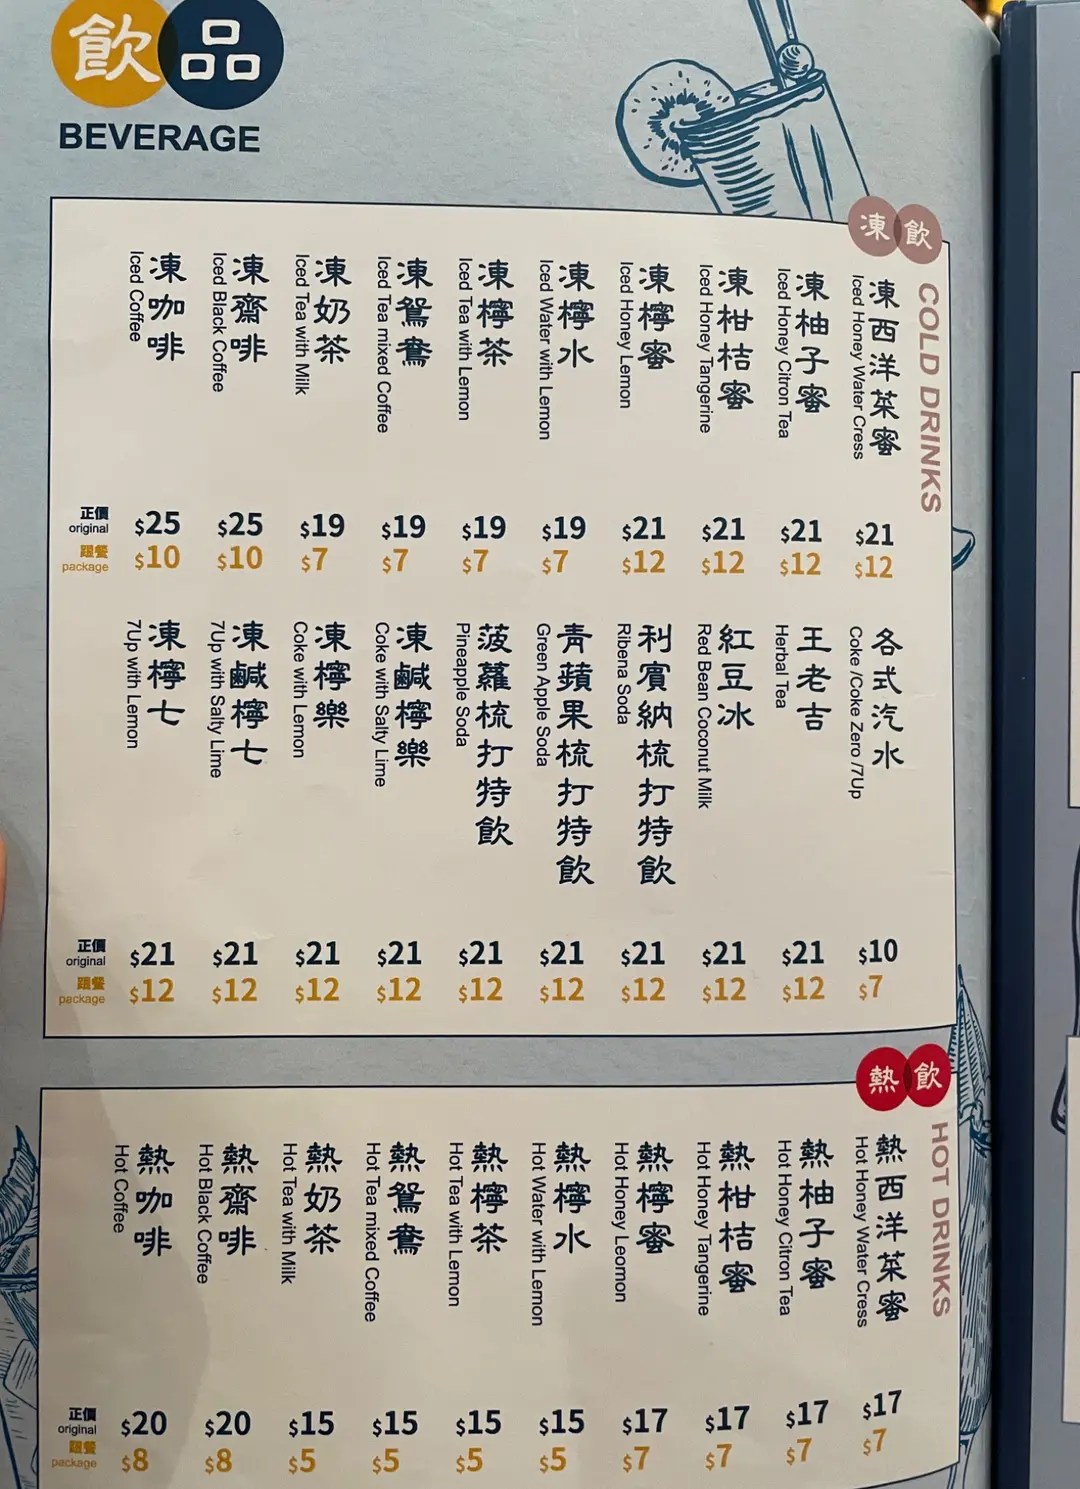 飲品
BEVERAGE
凍飲
COLD DRINKS
凍西洋菜蜜
Iced Honey Water Cress
$21
$12
凍柚子蜜
Iced Honey Citron Tea
$21
$12
凍柑桔蜜
Iced Honey Tangerine
$21
$12
凍檸蜜
Iced Honey Lemon
$21
$12
凍檸水
Iced Water with Lemon
$19
$7
凍檸茶
Iced Tea with Lemon
$19
$7
凍鴛鴦
Iced Tea mixed Coffee
$19
$7
凍奶茶
Iced Tea with Milk
$19
$7
凍齋啡
Iced Black Coffee
$25
$10
凍咖啡
Iced Coffee
$25
$10
正價
original
跟餐
package
各式汽水
Coke /Coke Zero /7Up
$10
$7
王老吉
Herbal Tea
$21
$12
紅豆冰
Red Bean Coconut Milk
$21
$12
利賓納梳打特飲
Ribena Soda
$21
$12
青蘋果梳打特飲
Green Apple Soda
$21
$12
菠蘿梳打特飲
Pineapple Soda
$21
$12
凍鹹檸樂
Coke with Salty Lime
$21
$12
凍檸樂
Coke with Lemon
$21
$12
凍鹹檸七
7Up with Salty Lime
$21
$12
凍檸七
7Up with Lemon
$21
$12
正價
original
跟餐
package
熱飲
HOT DRINKS
熱西洋菜蜜
Hot Honey Water Cress
$17
$7
熱柚子蜜
Hot Honey Citron Tea
$17
$7
熱柑桔蜜
Hot Honey Tangerine
$17
$7
熱檸蜜
Hot Honey Leomon
$17
$7
熱檸水
Hot Water with Lemon
$15
$5
熱檸茶
Hot Tea with Lemon
$15
$5
熱鴛鴦
Hot Tea mixed Coffee
$15
$5
熱奶茶
Hot Tea with Milk
$15
$5
熱齋啡
Hot Black Coffee
$20
$8
熱咖啡
Hot Coffee
$20
$8
正價
original
跟餐
package